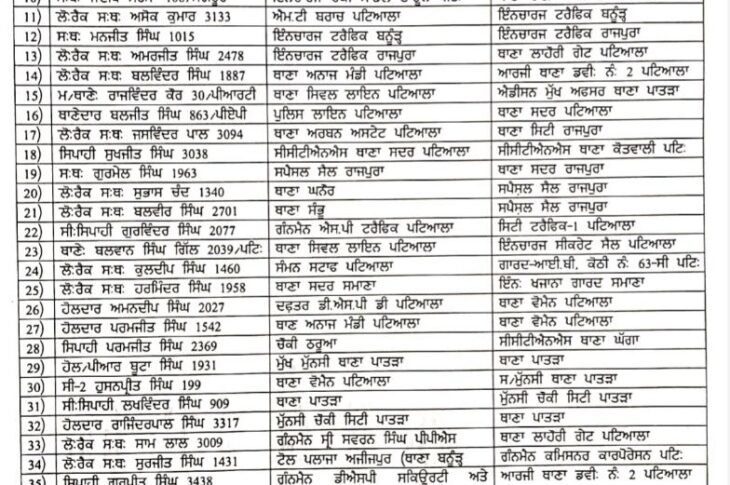 11) ਲੋ:ਰੈਕ ਸ:ਥ: ਅਸੋਕ ਕੁਮਾਰ 3133 ਐਮ.ਟੀ ਬਰਾਚ ਪਟਿਆਲਾ ਇੰਨਚਾਰਜ ਟਰੈਫਿਕ ਬਨੂੰੜ੍ਹ
12) ਸ:ਥ: ਮਨਜੀਤ ਸਿੰਘ 1015 ਇੰਨਚਾਰਜ ਟਰੈਫਿਕ ਬਨੂੰੜ੍ਹ ਇੰਨਚਾਰਜ ਟਰੈਫਿਕ ਰਾਜਪੁਰਾ
13) ਲੋ:ਰੈਕ ਸ:ਥ: ਅਮਰਜੀਤ ਸਿੰਘ 2478 ਇੰਨਚਾਰਜ ਟਰੈਫਿਕ ਰਾਜਪੁਰਾ ਥਾਣਾ ਲਾਹੋਰੀ ਗੇਟ ਪਟਿਆਲਾ
14) ਲੋ:ਰੈਕ ਸ:ਥ: ਬਲਵਿੰਦਰ ਸਿੰਘ 1887 ਥਾਣਾ ਅਨਾਜ ਮੰਡੀ ਪਟਿਆਲਾ ਆਰਜੀ ਥਾਣਾ ਡਵੀ: ਨੰ: 2 ਪਟਿਆਲਾ
15) ਮ/ਥਾਣੇ: ਰਾਜਵਿੰਦਰ ਕੌਰ 30/ਪੀਆਰਟੀ ਥਾਣਾ ਸਿਵਲ ਲਾਇਨ ਪਟਿਆਲਾ ਐਡੀਸਨ ਮੁੱਖ ਅਫਸਰ ਥਾਣਾ ਪਾਤੜਾ
16) ਥਾਣੇਦਾਰ ਬਲਜੀਤ ਸਿੰਘ 863/ਪੀਏਪੀ ਪੁਲਿਸ ਲਾਇਨ ਪਟਿਆਲਾ ਥਾਣਾ ਸਦਰ ਪਟਿਆਲਾ
17) ਲੋ:ਰੈਕ ਸ:ਥ: ਜਸਵਿੰਦਰ ਪਾਲ 3094 ਥਾਣਾ ਅਰਬਨ ਅਸਟੇਟ ਪਟਿਆਲਾ ਥਾਣਾ ਸਿਟੀ ਰਾਜਪੁਰਾ
18) ਸਿਪਾਹੀ ਸੁਖਜੀਤ ਸਿੰਘ 3038 ਸੀਸੀਟੀਐਨਐਸ ਥਾਣਾ ਸਦਰ ਪਟਿਆਲਾ ਸੀਸੀਟੀਐਨਐਸ ਥਾਣਾ ਕੋਤਵਾਲੀ ਪਟਿ:
19) ਸ:ਥ: ਗੁਰਮੇਲ ਸਿੰਘ 1963 ਸਪੈਸਲ ਸੈਲ ਰਾਜਪੁਰਾ ਥਾਣਾ ਸਦਰ ਰਾਜਪੁਰਾ
20) ਲੋ:ਰੈਕ ਸ:ਥ: ਸੁਭਾਸ ਚੰਦ 1340 ਥਾਣਾ ਘਨੌਰ ਸਪੈਸਲ ਸੈਲ ਰਾਜਪੁਰਾ
21) ਲੋ:ਰੈਕ ਸ:ਥ: ਬਲਵੀਰ ਸਿੰਘ 2701 ਥਾਣਾ ਸੰਭੂ ਸਪੈਸਲ ਸੈਲ ਰਾਜਪੁਰਾ
22) ਸੀ:ਸਿਪਾਹੀ ਗੁਰਵਿੰਦਰ ਸਿੰਘ 2077 ਗੰਨਮੈਨ ਐਸ.ਪੀ ਟਰੈਫਿਕ ਪਟਿਆਲਾ ਸਿਟੀ ਟਰੈਫਿਕ-1 ਪਟਿਆਲਾ
23) ਥਾਣੇ: ਬਲਵਾਨ ਸਿੰਘ ਗਿੱਲ 2039/ਪਟਿ: ਥਾਣਾ ਸਿਵਲ ਲਾਇਨ ਪਟਿਆਲਾ ਇੰਨਚਾਰਜ ਸੀਕਰੇਟ ਸੈਲ ਪਟਿਆਲਾ
24) ਲੋ:ਰੈਕ ਸ:ਥ: ਕੁਲਦੀਪ ਸਿੰਘ 1460 ਸੰਮਨ ਸਟਾਫ ਪਟਿਆਲਾ ਗਾਰਦ-ਆਈ.ਬੀ. ਕੋਠੀ ਨੰ: 63-ਸੀ ਪਟਿ:
25) ਲੋ:ਰੈਕ ਸ:ਥ: ਹਰਮਿੰਦਰ ਸਿੰਘ 1958 ਥਾਣਾ ਸਦਰ ਸਮਾਣਾ ਇੰਨ: ਖਜਾਨਾ ਗਾਰਦ ਸਮਾਣਾ
26) ਹੋਲਦਾਰ ਅਮਨਦੀਪ ਸਿੰਘ 2027 ਦਫਤਰ ਡੀ.ਐਸ.ਪੀ ਡੀ ਪਟਿਆਲਾ ਥਾਣਾ ਵੋਮੈਨ ਪਟਿਆਲਾ
27) ਹੋਲਦਾਰ ਪਰਮਜੀਤ ਸਿੰਘ 1542 ਥਾਣ ਅਨਾਜ ਮੰਡੀ ਪਟਿਆਲਾ ਥਾਣਾ ਵੋਮੈਨ ਪਟਿਆਲਾ
28) ਸਿਪਾਹੀ ਪਰਮਜੀਤ ਸਿੰਘ 2369 ਚੌਕੀ ਠਰੂਆ ਸੀਸੀਟੀਐਨਐਸ ਥਾਣਾ ਘੱਗਾ
29) ਹੋਲ/ਪੀਆਰ ਬੂਟਾ ਸਿੰਘ 1931 ਮੁੱਖ ਮੁਨਸੀ ਥਾਣਾ ਪਾਤੜਾ ਥਾਣਾ ਪਾਤੜਾ
30) ਸੀ-2 ਹੁਸਨਪ੍ਰੀਤ ਸਿੰਘ 199 ਥਾਣਾ ਵੋਮੈਨ ਪਟਿਆਲਾ ਸ/ਮੁੰਨਸੀ ਥਾਣਾ ਪਾਤੜਾ
31) ਸੀ:ਸਿਪਾਹੀ ਲਖਵਿੰਦਰ ਸਿੰਘ 909 ਥਾਣਾ ਪਾਤੜਾ ਮੁੰਨਸੀ ਚੋਕੀ ਸਿਟੀ ਪਾਤੜਾ
32) ਹੋਲਦਾਰ ਰਾਜਿੰਦਰਪਾਲ ਸਿੰਘ 3317 ਮੁੰਨਸੀ ਚੋਕੀ ਸਿਟੀ ਪਾਤੜਾ ਥਾਣਾ ਪਾਤੜਾ
33) ਲੋ:ਰੈਕ ਸ:ਥ: ਸਾਮ ਲਾਲ 3009 ਗੰਨਮੈਨ ਸ੍ਰੀ ਸਵਰਨ ਸਿੰਘ ਪੀਪੀਐਸ ਥਾਣਾ ਲਾਹੋਰੀ ਗੇਟ ਪਟਿਆਲਾ
34) ਲੋ:ਰੈਕ ਸ:ਥ: ਸੁਰਜੀਤ ਸਿੰਘ 1431 ਟੋਲ ਪਲਾਜਾ ਅਜੀਜਪੁਰ (ਥਾਣਾ ਬਨੂੰੜ੍ਹ ਗੰਨਮੈਨ ਕਮਿਸਨਰ ਕਾਰਪੋਰੇਸਨ ਪਟਿ:
35) ਸਿਪਾਹੀ ਗੁਰਪ੍ਰੀਤ ਸਿੰਘ 3438 ਗੰਨਮੈਨ ਡੀਐਸਪੀ ਸਕਿਉਰਟੀ ਅਤੇ ਆਰਜੀ ਥਾਣਾ ਡਵੀ: ਨੰ: 2 ਪਟਿਆਲਾ